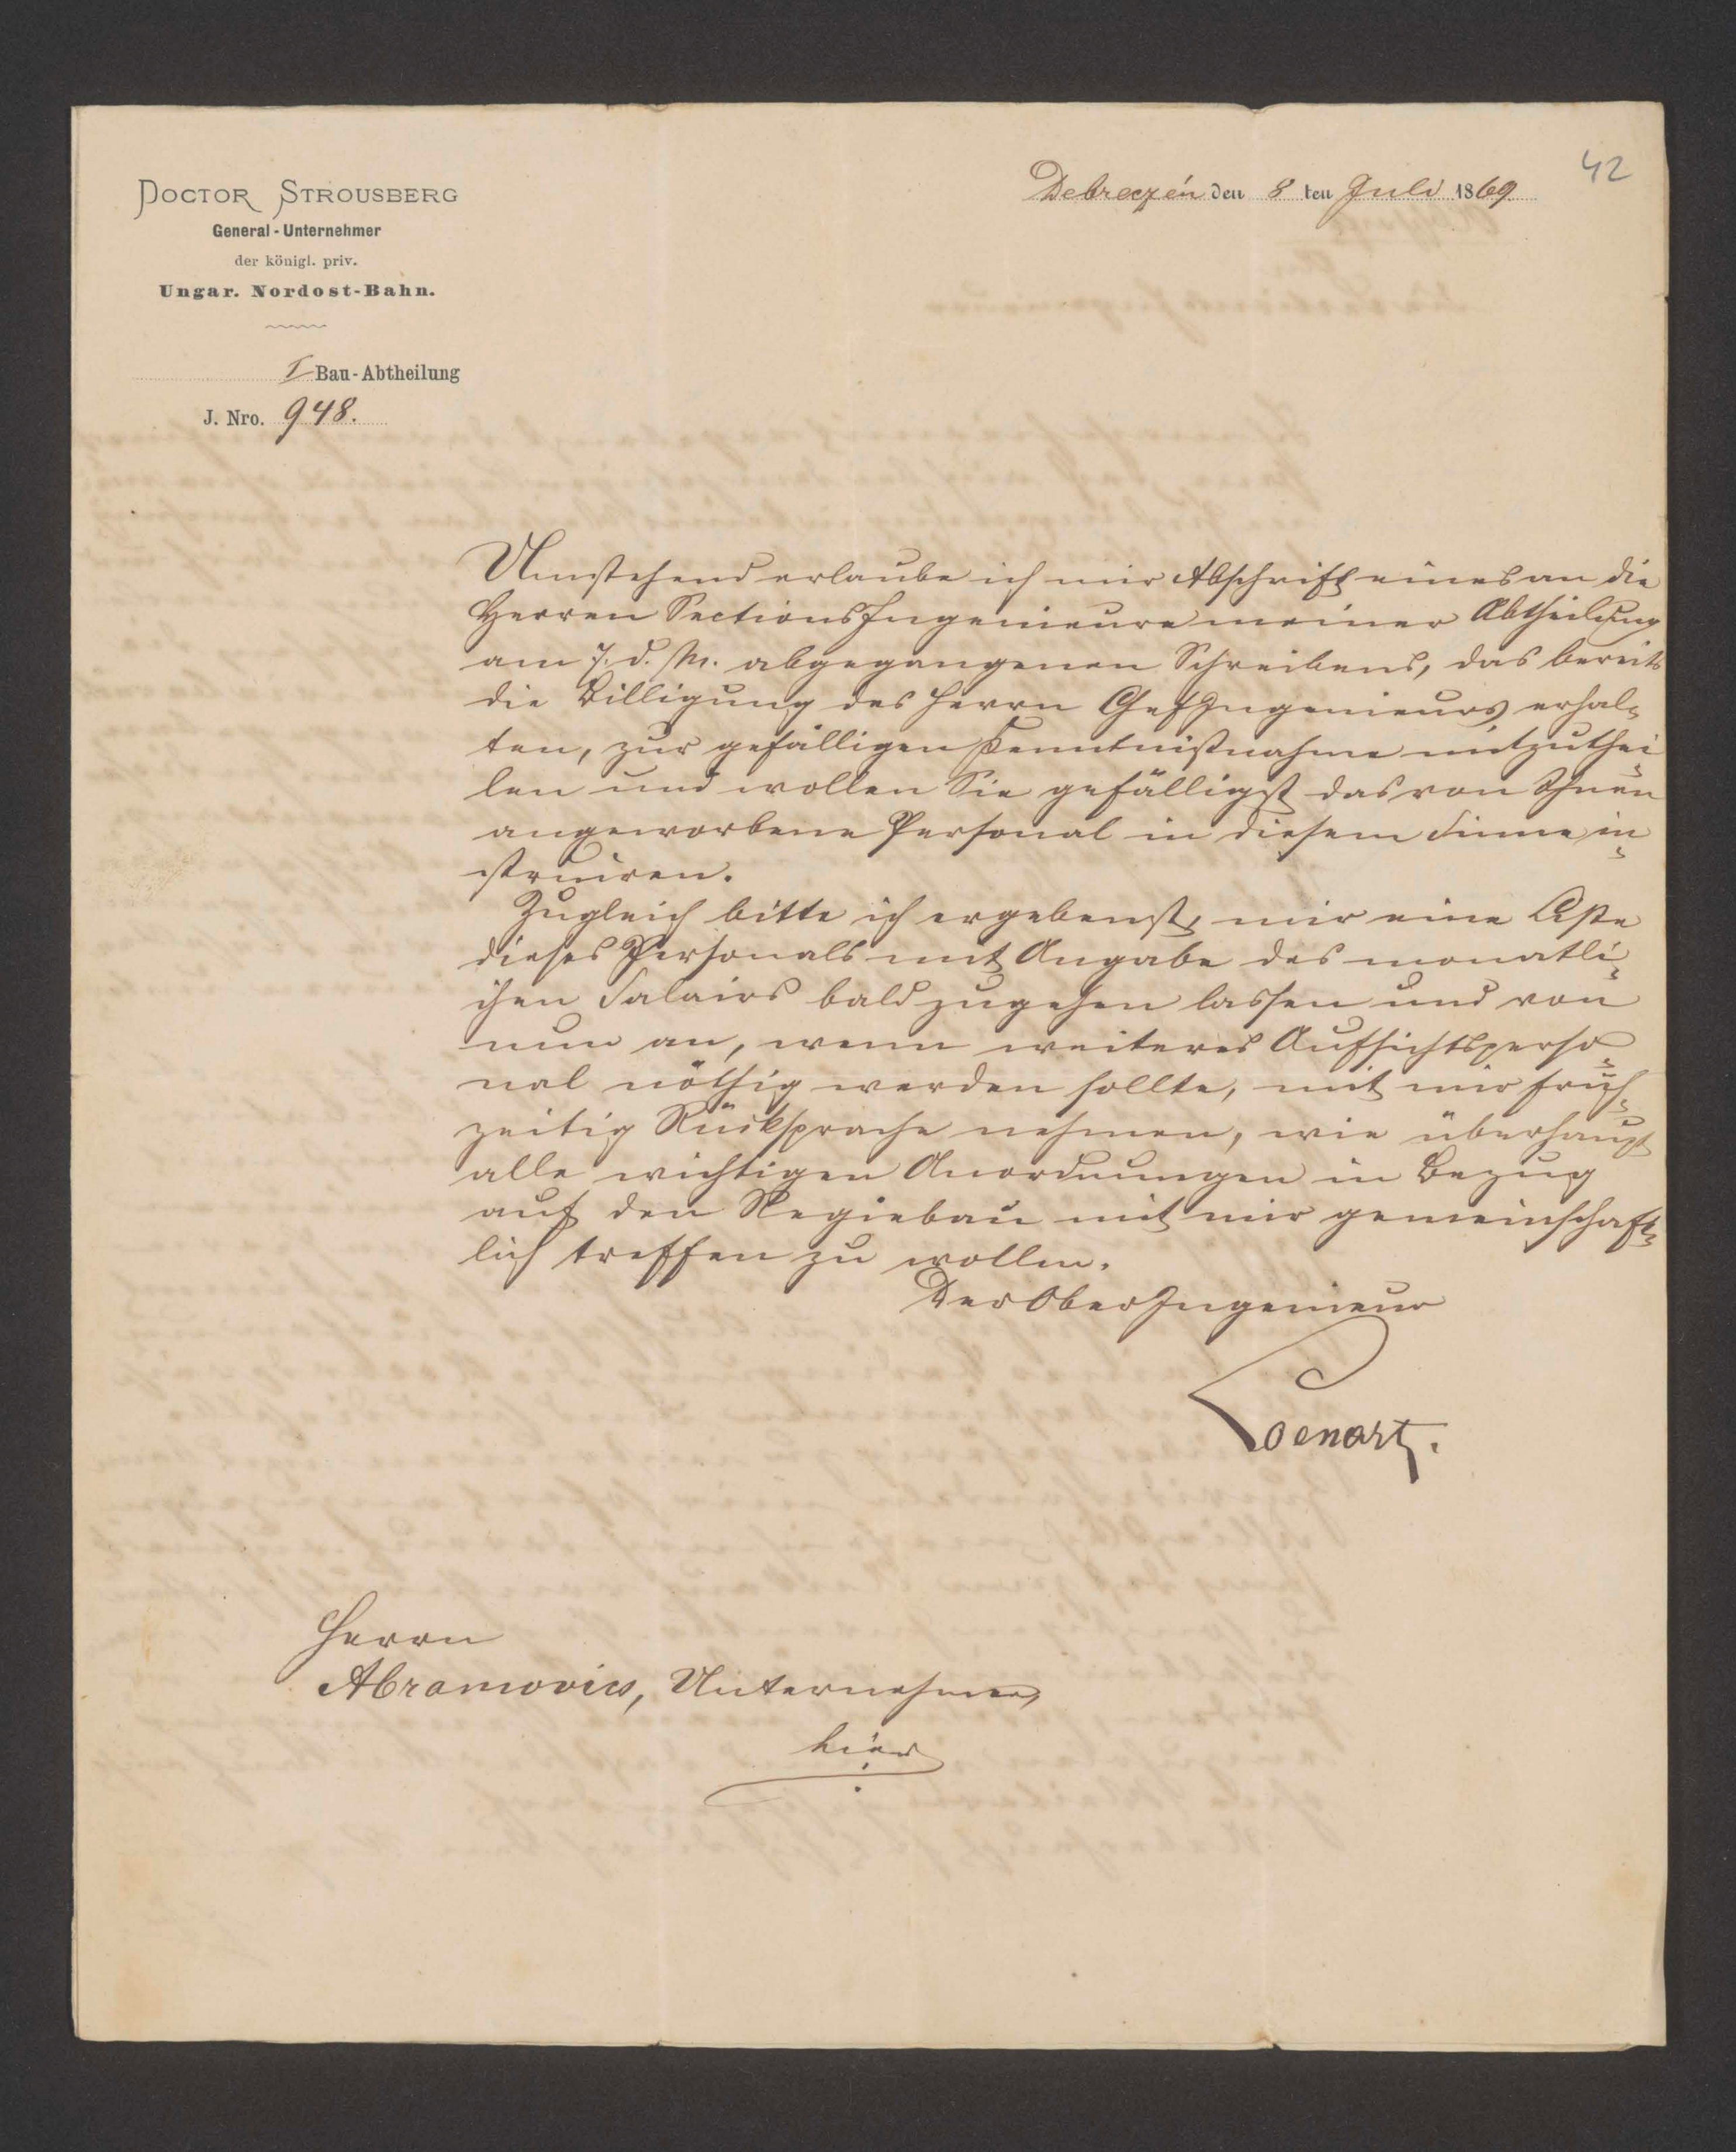 42
DOCTOR STROUSBERG
General-Unternehmer
der königl. priv.
Ungar. Nordost-Bahn.
I Bau-Abtheilung
J. Nro. 948.
Debreczén den 8 ten Juli 1869
Umstehend erlaube ich mir Abschrift eines an die
Herren Sections Ingenieure meiner Abtheilung
am 7. d. M. abgegangenen Schreibens, das bereits
die Billigung des Herrn Chef Ingenieurs erhal=
ten, zur gefälligen Kenntnißnahme mitzuthei=
len und wollen Sie gefälligst das von Ihnen
angeworbene Personal in diesem Sinne in=
struiren.
Zugleich bitte ich ergebenst, mir eine Liste
dieses Personals mit Angabe des monatli=
chen Salairs bald zugehen lassen und von
nun an, wenn weiteres Aufsichtsperso=
nal nöthig werden sollte, mit mir früh=
zeitig Rücksprache nehmen, wie überhaupt
alle wichtigen Anordnungen in Bezug
auf den Regiebau mit mir gemeinschaft=
lich treffen zu wollen.
Der Ober Ingenieur
Loenartz.
Herrn
Abramovics, Unternehmer,
hier